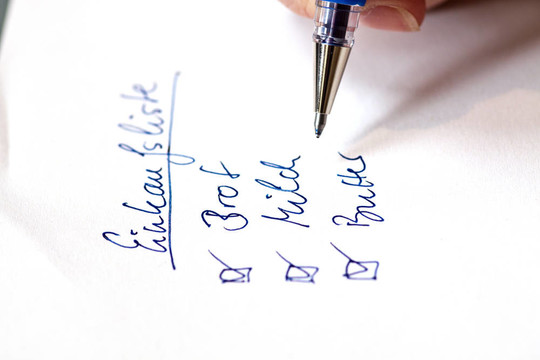 Einkaufsliste
Brot
Milch
Butter